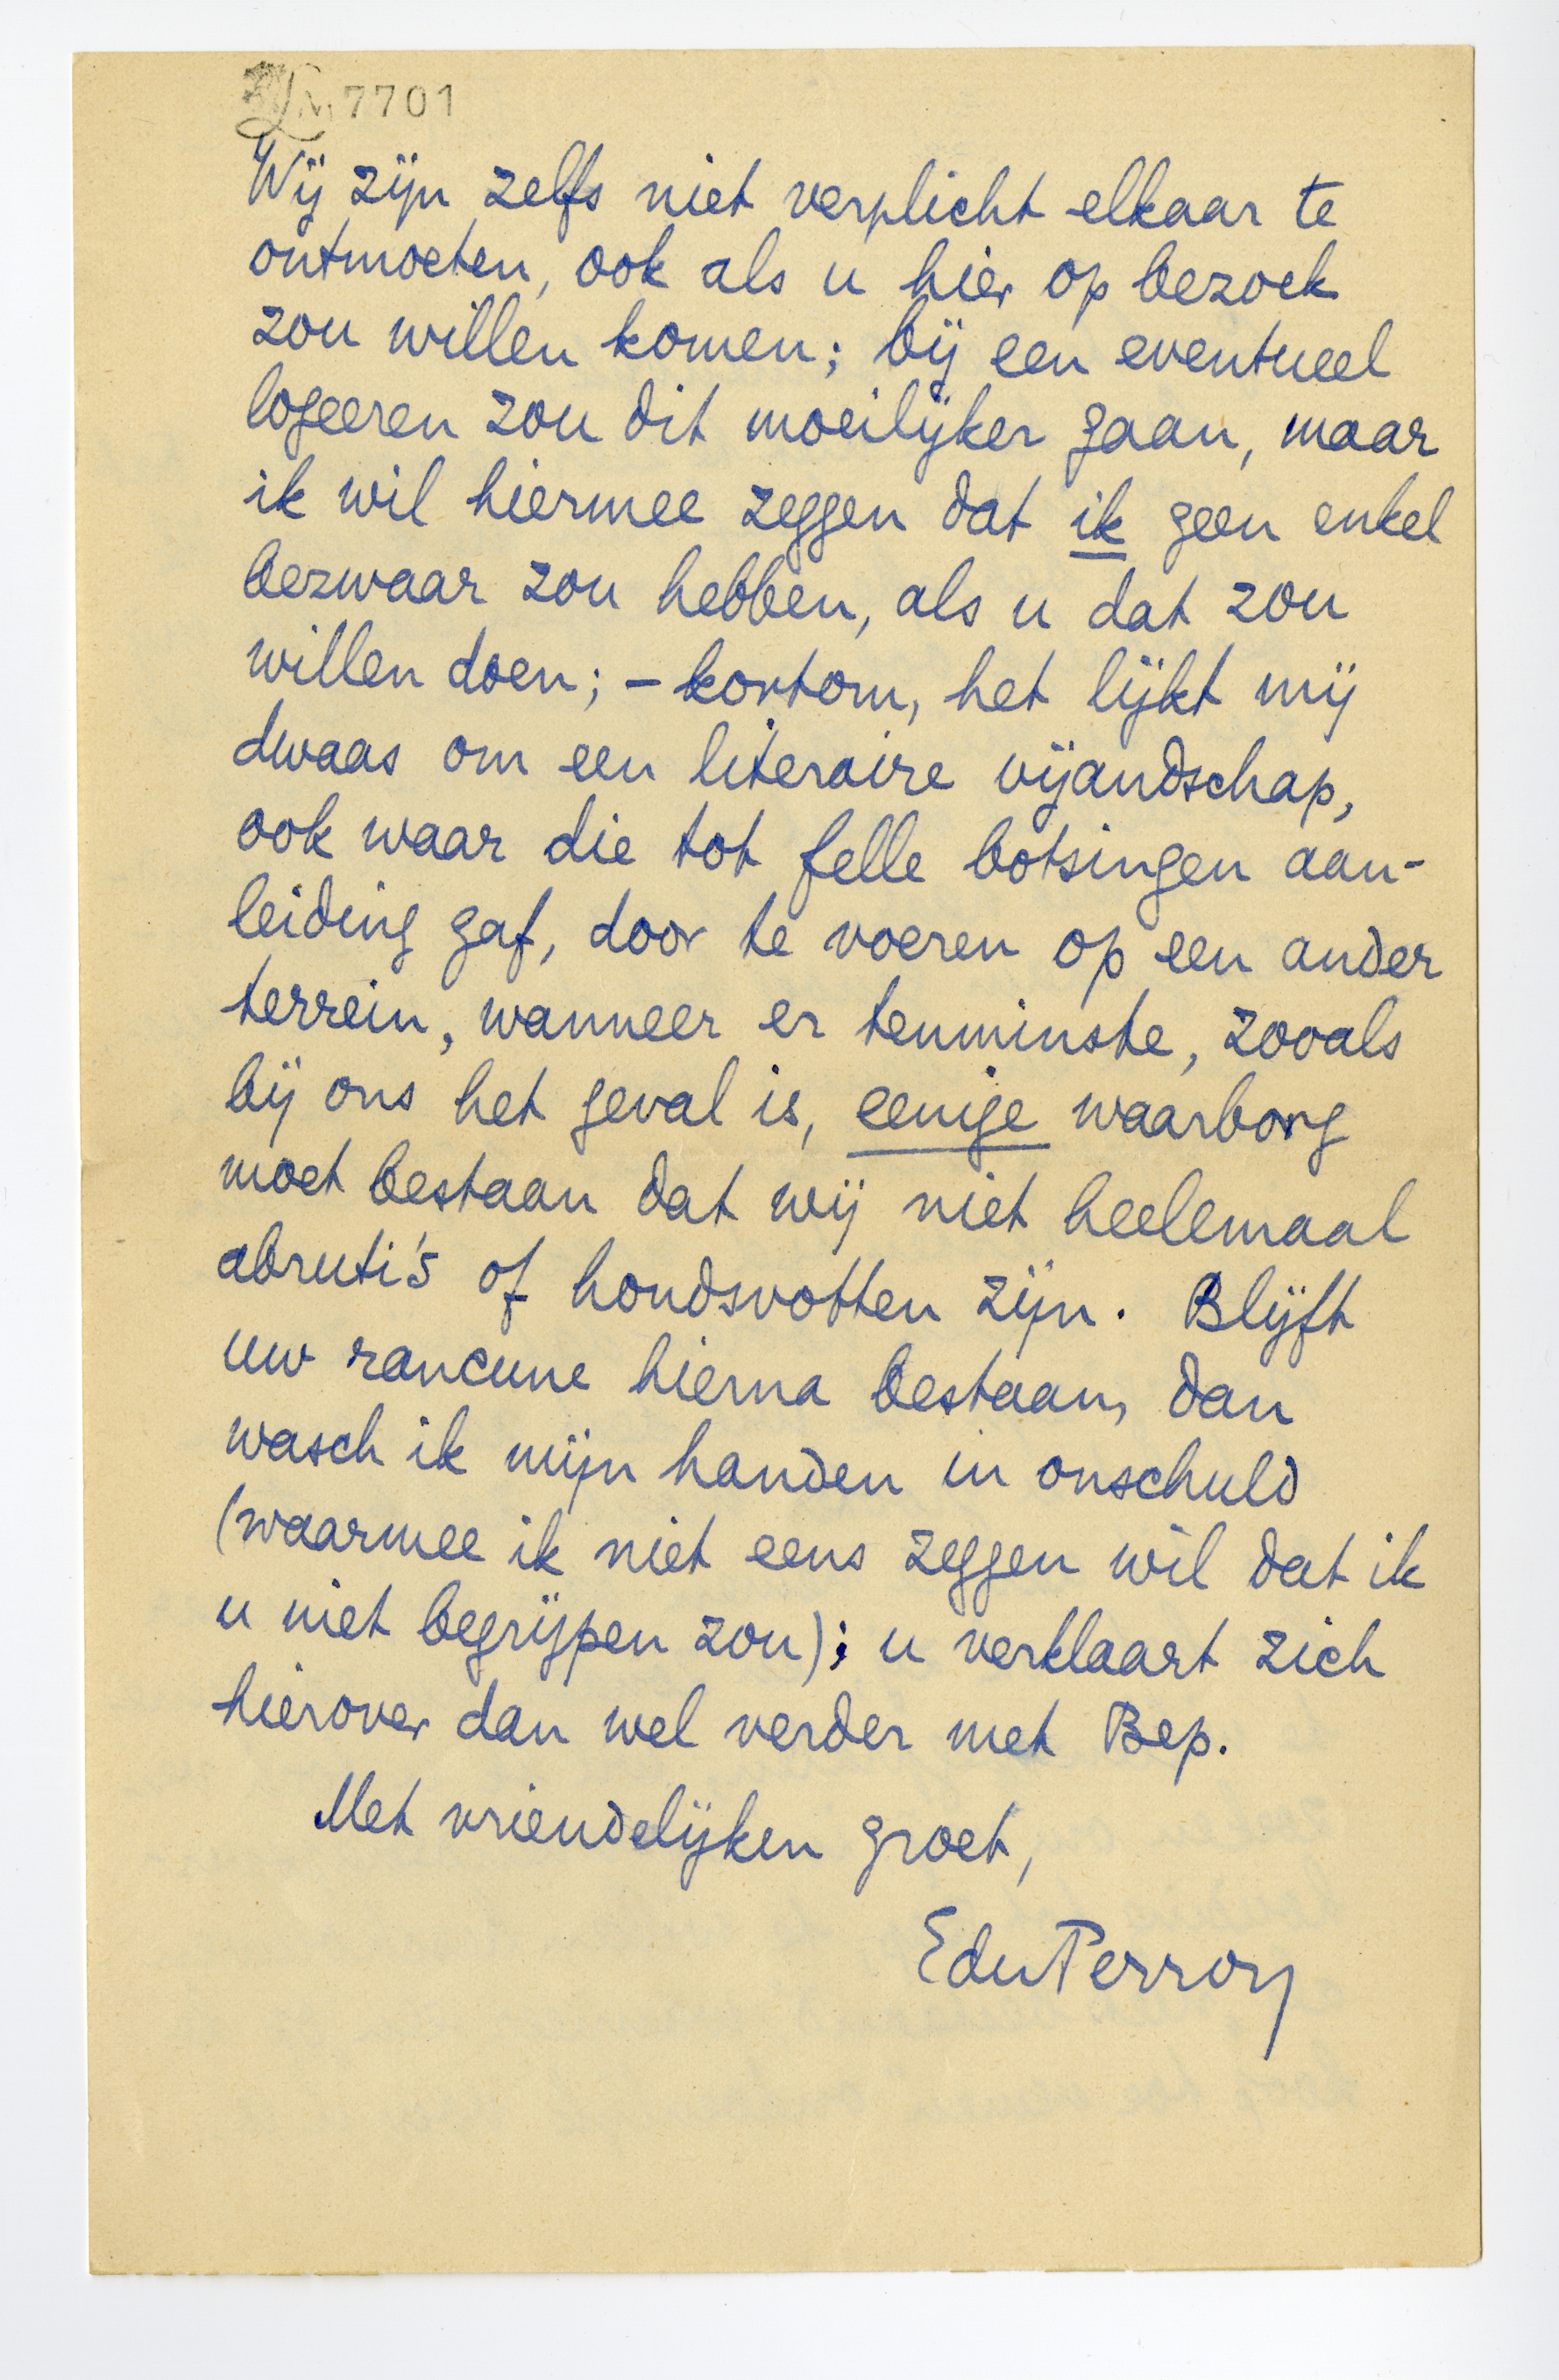 7701
Wij zijn zelfs niet verplicht elkaar te
ontmoeten, ook als u hier op bezoek
zou willen komen; bij een eventueel
logeeren zou dit moeilijker gaan, maar
ik wil hiermee zeggen dat ik geen enkel
bezwaar zou hebben, als u dat zou
willen doen; – kortom, het lijkt mij
dwaas om een literaire vijandschap,
ook waar die tot felle botsingen aan-
leiding gaf, door te voeren op een ander
terrein, wanneer er tenminste, zooals
bij ons het geval is, eenige waarborg
moet bestaan dat wij niet heelemaal
abruti's of hondsvotten zijn. Blijft
uw rancune hierna bestaan, dan
wasch ik mijn handen in onschuld
(waarmee ik niet eens zeggen wil dat ik
u niet begrijpen zou); u verklaart zich
hierover dan wel verder met Bep.
Met vriendelijken groet,
EduPerron